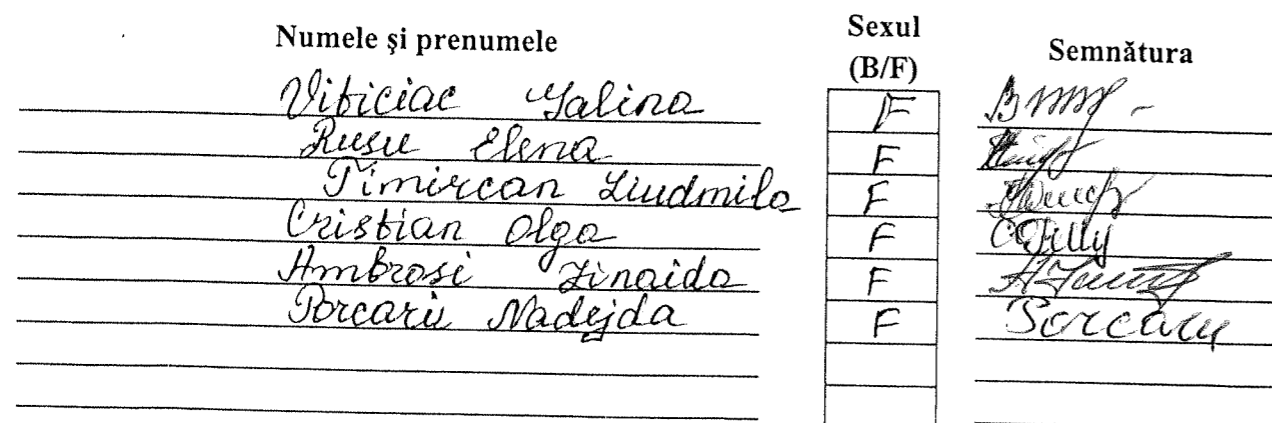 Numele şi prenumele Sexul (B/F) Semnătura
Vibiciac Galina F
Rusu Elena F
Timircan Liudmila F
Cristian Olga F
Ambrosi Zinaida F
Porcarii Nadejda F Porcarii